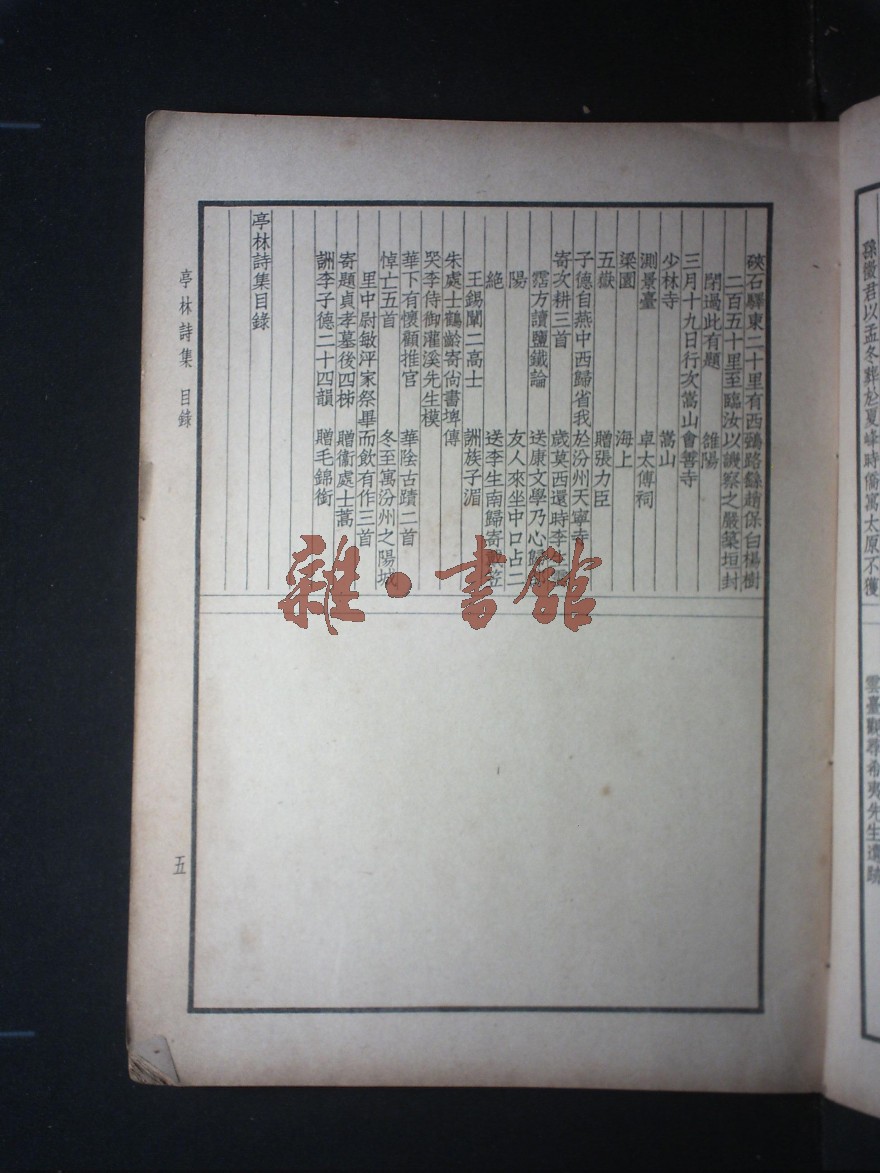 孫徵君以孟冬葬於夏峰時僑寓太原不獲
雲臺觀尋希夷先生遺跡
硤石驛東二十里有西鵶路繇趙保白楊樹
二百五十里至臨汝以譏察之嚴築垣封
閉過此有題 雒陽
三月十九日行次嵩山會善寺
少林寺 嵩山
測景臺 卓太傅祠
梁園 海上
五嶽 贈張力臣
子德自燕中西歸省我於汾州天寧寺
寄次耕三首 歲莫西還時李
霑方讀鹽鐵論 送康文學乃心歸
陽 友人來坐中口占二
絶 送李生南歸寄笠
王錫闡二高士 詶族子湄
朱處士鶴齡寄尚書埤傳
哭李侍御灌溪先生模
華下有懷顧推官 華陰古蹟二首
悼亡五首 冬至寓汾州之陽城
里中尉敏泙家祭畢而飲有作三首
寄題貞孝墓後四柹 贈衞處士蒿
詶李子德二十四韻 贈毛錦銜
亭林詩集目錄
亭林詩集 目錄
五
雜·書館